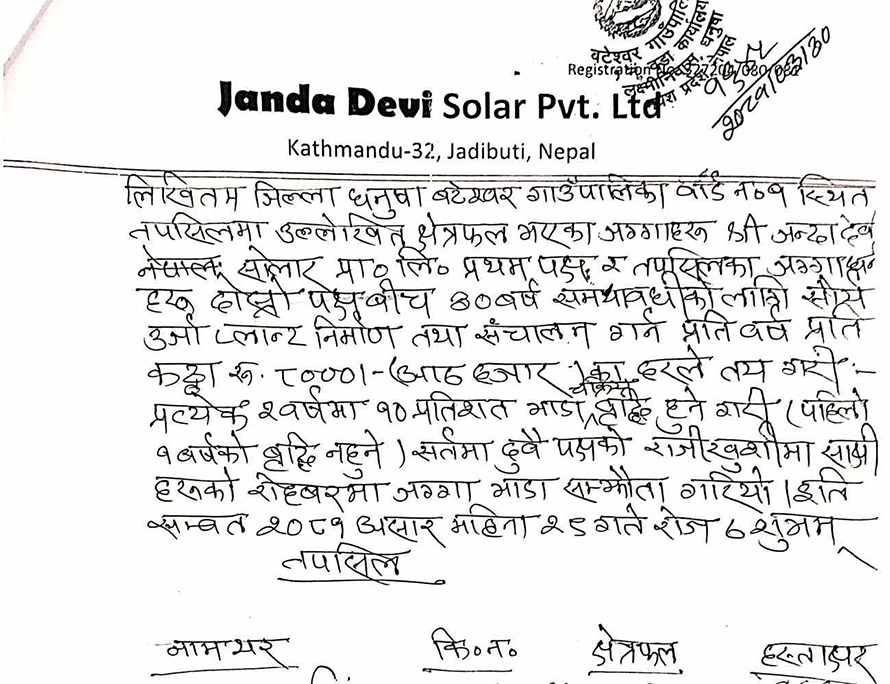 बटेश्वर गाउँपालिका
वडा कार्यालय
लक्ष्मीनिवास, धनुषा
प्रदेश, नेपाल
Registration No.
2081/03/30
Janda Devi Solar Pvt. Ltd
Kathmandu-32, Jadibuti, Nepal
लिखितम जिल्ला धनुषा बटेश्वर गाउँपालिका वार्ड न०१ स्थित
तपसिलमा उल्लेखित क्षेत्रफल भएका जग्गाहरू श्री जन्दा देवी
नेपाल सोलार प्रा० लि० प्रथम पक्ष र तपसिलका जग्गाधनी
हरू दोस्रो पक्ष बीच ३०बर्ष समयावधीको लागि सौर्य
उर्जा प्लान्ट निर्माण तथा संचालन गर्न प्रति वर्ष प्रति
कठ्ठा रू. ८०००।- (आठ हजार) का दरले तय गरी :-
प्रत्येक २वर्षमा १० प्रतिशत भाडा चक्रिय बृद्धि हुने गरी (पहिलो
१ बर्षको बृद्धि नहुने) सर्तमा दुवै पक्षको राजीखुशीमा साक्षी
हरूको रोहबरमा जग्गा भाडा सम्झौता गरियो। इति
सम्वत २०८१ असार महिना २५ गते रोज ६ शुभम्
तपसिल
नामथर कि०न० क्षेत्रफल हस्ताक्षर